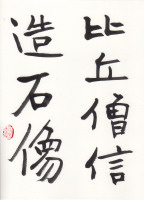 比丘僧信
造石像